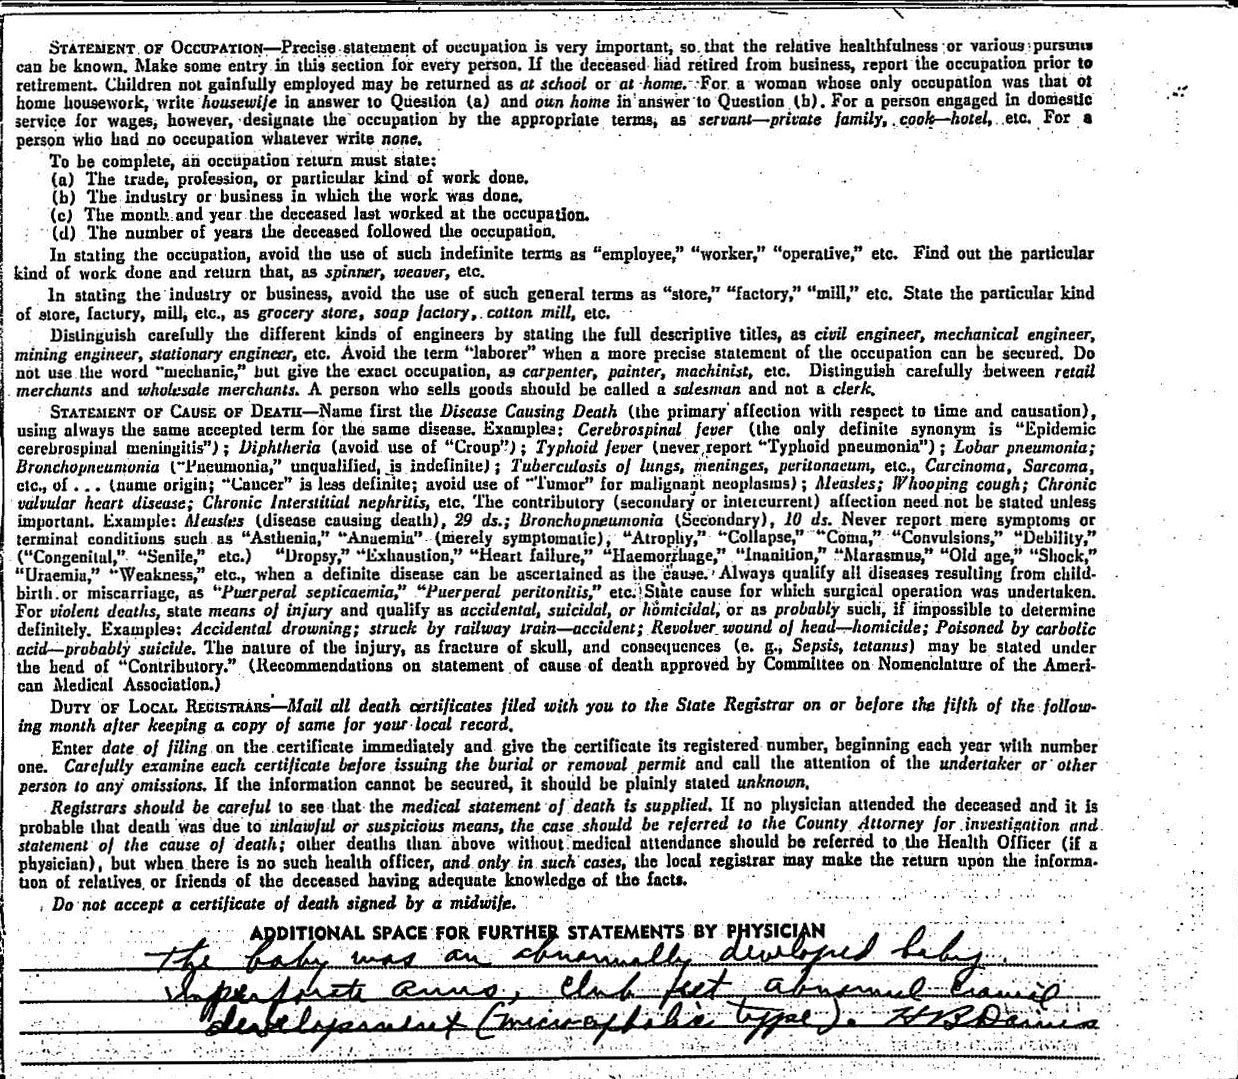 STATEMENT OF OCCUPATION—Precise statement of occupation is very important, so that the relative healthfulness or various pursuits
can be known. Make some entry in this section for every person. If the deceased had retired from business, report the occupation prior to
retirement. Children not gainfully employed may be returned as at school or at home. For a woman whose only occupation was that of
home housework, write housewife in answer to Question (a) and own home in answer to Question (b). For a person engaged in domestic
service for wages, however, designate the occupation by the appropriate terms, as servant—private family, cook—hotel, etc. For a
person who had no occupation whatever write none.
To be complete, an occupation return must state:
(a) The trade, profession, or particular kind of work done.
(b) The industry or business in which the work was done.
(c) The month and year the deceased last worked at the occupation.
(d) The number of years the deceased followed the occupation.
In stating the occupation, avoid the use of such indefinite terms as "employee," "worker," "operative," etc. Find out the particular
kind of work done and return that, as spinner, weaver, etc.
In stating the industry or business, avoid the use of such general terms as "store," "factory," "mill," etc. State the particular kind
of store, factory, mill, etc., as grocery store, soap factory, cotton mill, etc.
Distinguish carefully the different kinds of engineers by stating the full descriptive titles, as civil engineer, mechanical engineer,
mining engineer, stationary engineer, etc. Avoid the term "laborer" when a more precise statement of the occupation can be secured. Do
not use the word "mechanic," but give the exact occupation, as carpenter, painter, machinist, etc. Distinguish carefully between retail
merchants and wholesale merchants. A person who sells goods should be called a salesman and not a clerk.
STATEMENT OF CAUSE OF DEATH—Name first the Disease Causing Death (the primary affection with respect to time and causation),
using always the same accepted term for the same disease. Examples: Cerebrospinal fever (the only definite synonym is "Epidemic
cerebrospinal meningitis"); Diphtheria (avoid use of "Croup"); Typhoid fever (never report "Typhoid pneumonia"); Lobar pneumonia;
Bronchopneumonia ("Pneumonia," unqualified, is indefinite); Tuberculosis of lungs, meninges, peritonaeum, etc., Carcinoma, Sarcoma,
etc., of . . . (name origin; "Cancer" is less definite; avoid use of "Tumor" for malignant neoplasms); Measles; Whooping cough; Chronic
valvular heart disease; Chronic Interstitial nephritis, etc. The contributory (secondary or intercurrent) affection need not be stated unless
important. Example: Measles (disease causing death), 29 ds.; Bronchopneumonia (Secondary), 10 ds. Never report mere symptoms or
terminal conditions such as "Asthenia," "Anaemia" (merely symptomatic), "Atrophy," "Collapse," "Coma," "Convulsions," "Debility,"
("Congenital," "Senile," etc.) "Dropsy," "Exhaustion," "Heart failure," "Haemorrhage," "Inanition," "Marasmus," "Old age," "Shock,"
"Uraemia," "Weakness," etc., when a definite disease can be ascertained as the cause. Always qualify all diseases resulting from child-
birth or miscarriage, as "Puerperal septicaemia," "Puerperal peritonitis," etc. State cause for which surgical operation was undertaken.
For violent deaths, state means of injury and qualify as accidental, suicidal, or homicidal, or as probably such, if impossible to determine
definitely. Examples: Accidental drowning; struck by railway train—accident; Revolver wound of head—homicide; Poisoned by carbolic
acid—probably suicide. The nature of the injury, as fracture of skull, and consequences (e. g., Sepsis, tetanus) may be stated under
the head of "Contributory." (Recommendations on statement of cause of death approved by Committee on Nomenclature of the Ameri-
can Medical Association.)
DUTY OF LOCAL REGISTRARS—Mail all death certificates filed with you to the State Registrar on or before the fifth of the follow-
ing month after keeping a copy of same for your local record.
Enter date of filing on the certificate immediately and give the certificate its registered number, beginning each year with number
one. Carefully examine each certificate before issuing the burial or removal permit and call the attention of the undertaker or other
person to any omissions. If the information cannot be secured, it should be plainly stated unknown.
Registrars should be careful to see that the medical statement of death is supplied. If no physician attended the deceased and it is
probable that death was due to unlawful or suspicious means, the case should be referred to the County Attorney for investigation and
statement of the cause of death; other deaths than above without medical attendance should be referred to the Health Officer (if a
physician), but when there is no such health officer, and only in such cases, the local registrar may make the return upon the informa-
tion of relatives or friends of the deceased having adequate knowledge of the facts.
Do not accept a certificate of death signed by a midwife.
ADDITIONAL SPACE FOR FURTHER STATEMENTS BY PHYSICIAN
The baby was an abnormally developed baby.
Imperforate anus, club feet abnormal cranial
development (microcephalic type). H B